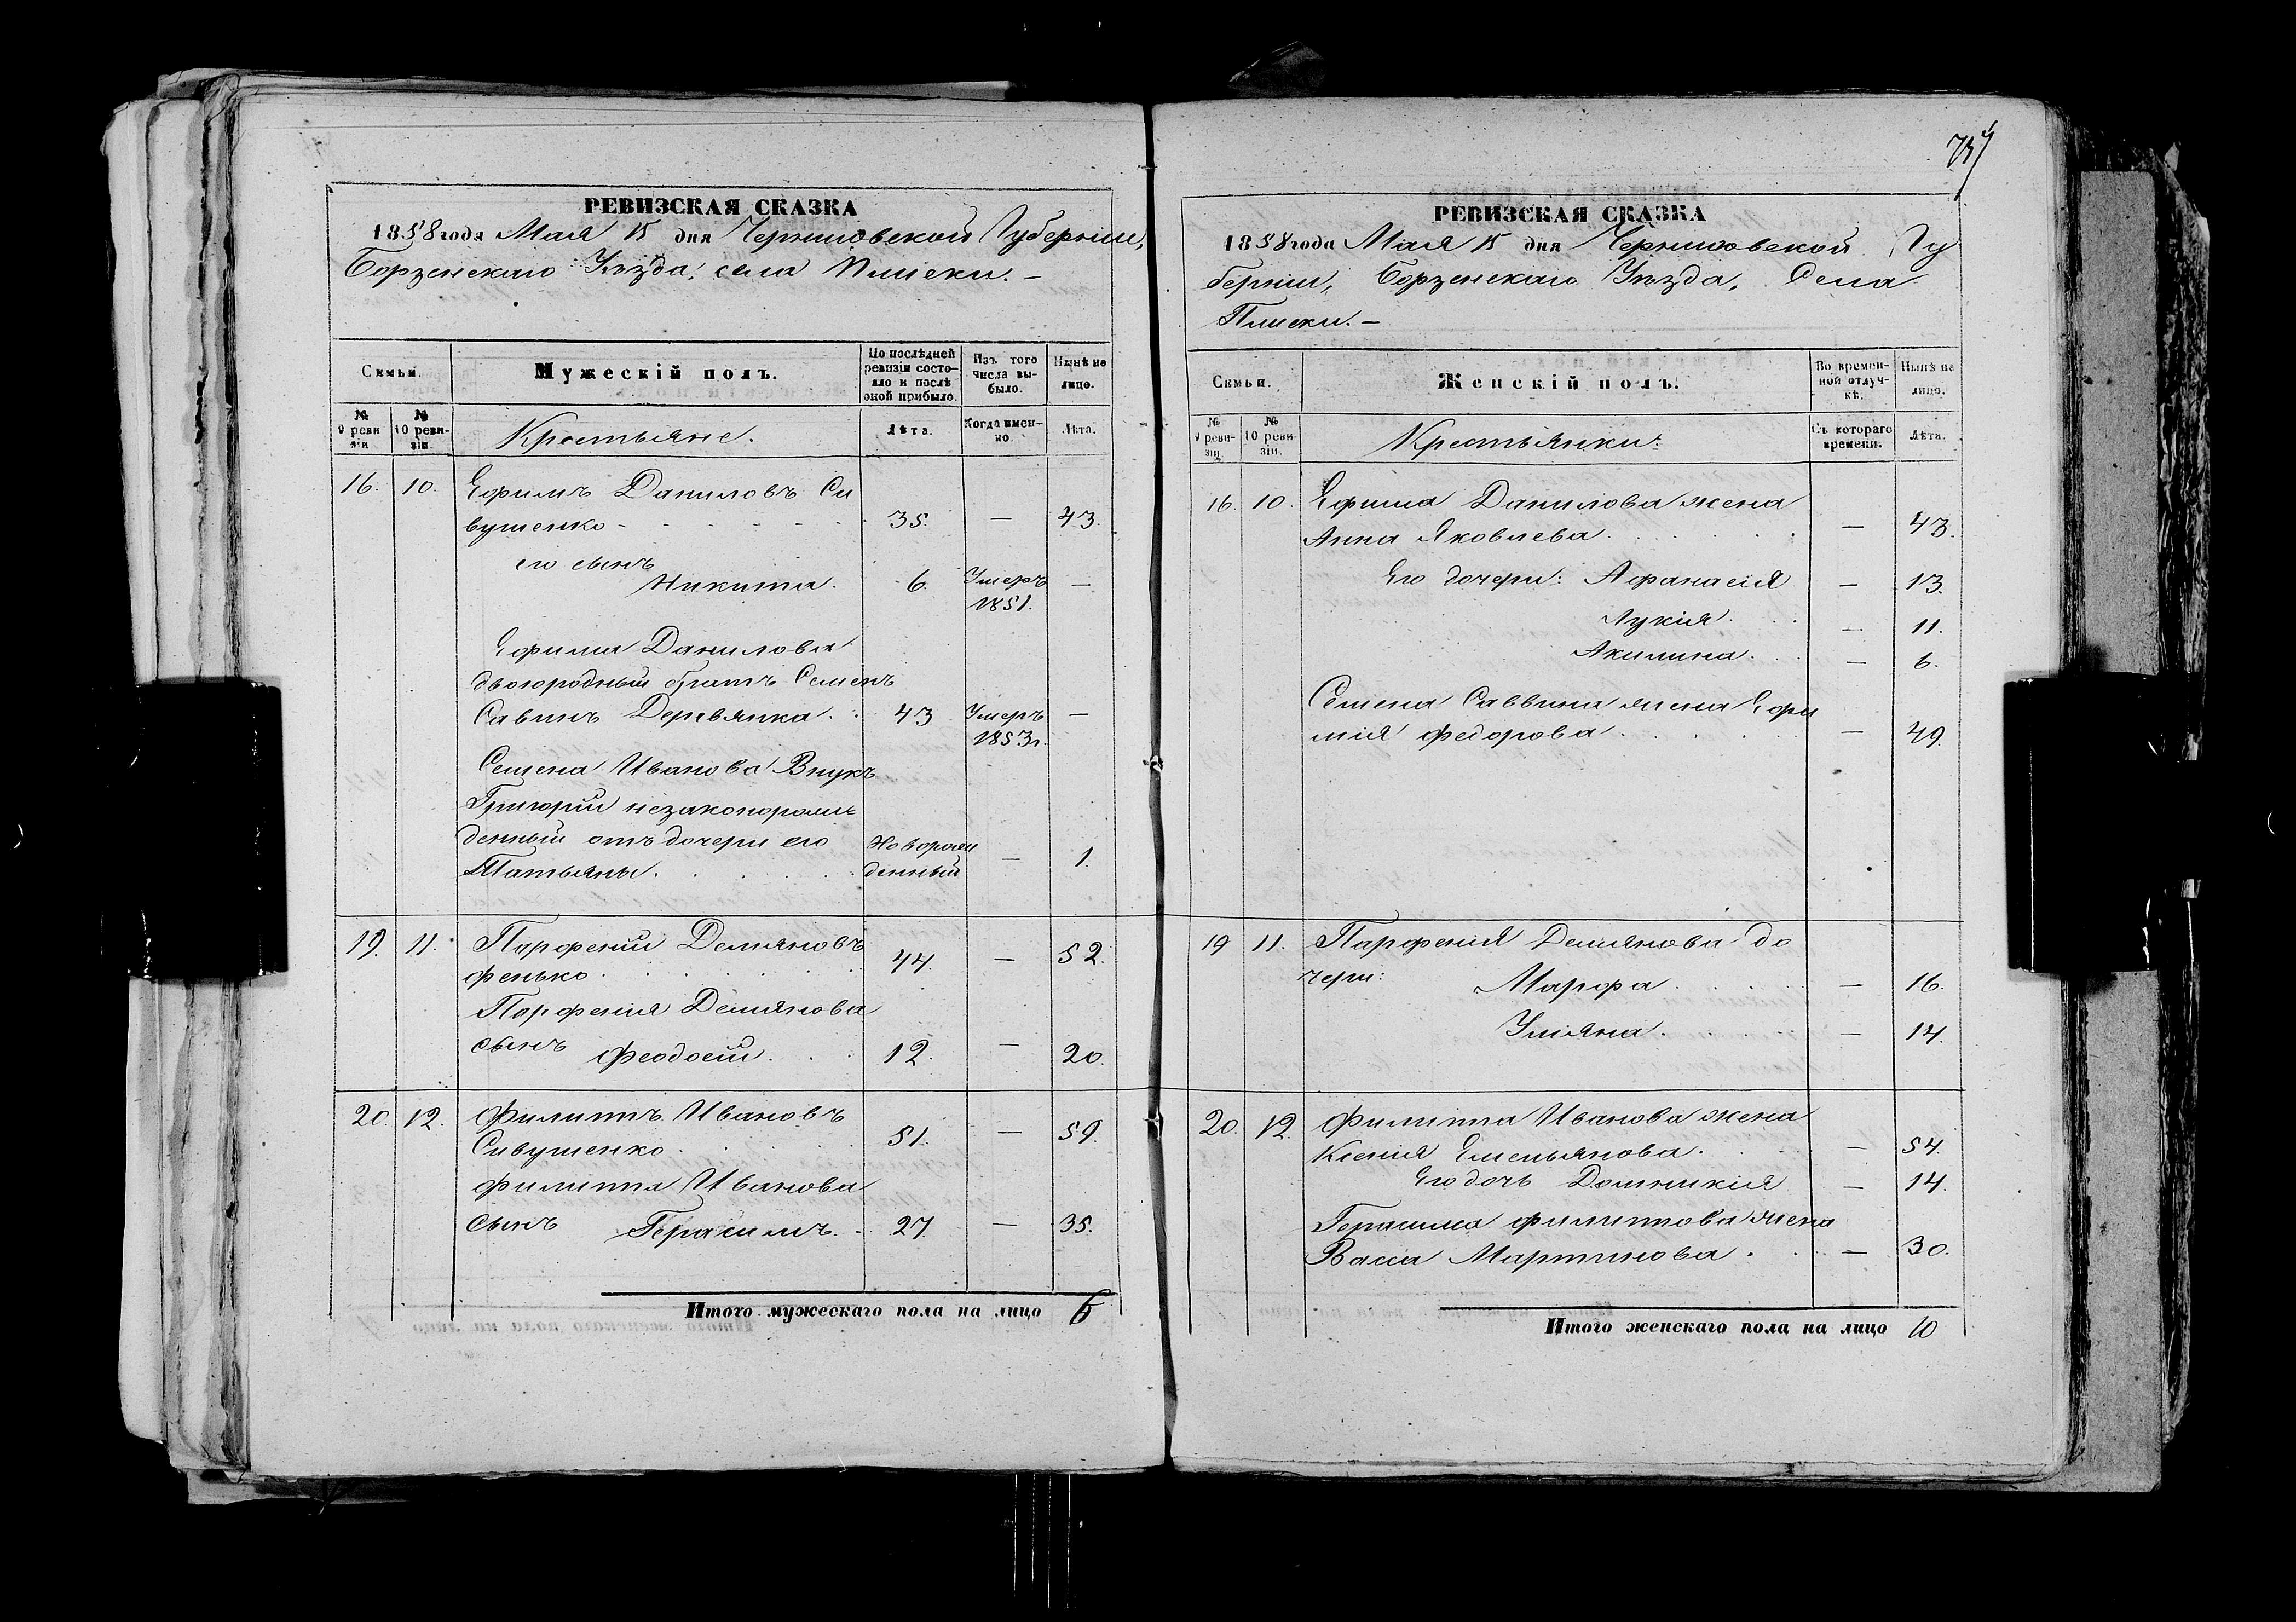 РЕВИЗСКАЯ СКАЗКА
1858 года Мая 15 дня Черниговской Губерніи,
Борзенскаго Уѣзда, села Плиски. –
Семьи.
Мужескій полъ.
По послѣдней ревизіи состояло и послѣ оной прибыло.
Изъ того числа выбыло.
Нынѣ на лицо.
№ 9 ревизіи
№ 10 ревизіи.
Крестьяне.
Лѣта.
Когда именно.
Лѣта.
16. 10. Ефимъ Даниловъ Си
вушенко - 35. — 43.
его сынъ
Никита. 6. Умеръ —
1851.
Ефима Данилова
двоюродный братъ Семенъ
Савинъ Деревянка. 43 Умеръ —
1853г.
Семена Иванова Внукъ
Григорій незаконорож
денный отъ дочери его Новорож
Татьяны. денный — 1.
19. 11. Парфеній Демяновъ
Фенько. 44. — 52.
Парфенія Демянова
сынъ Феодосій. 12. — 20.
20. 12. Филиппъ Ивановъ
Сивушенко. 51. — 59.
Филиппа Иванова
сынъ Герасимъ. 27. — 35.
Итого мужескаго пола на лицо 6
757
РЕВИЗСКАЯ СКАЗКА
1858 года Мая 15 дня Черниговской Гу
берніи, Борзенскаго Уѣзда, Села
Плиски. –
Семьи.
Женскій полъ.
Во временной отлучкѣ.
Нынѣ на лицо.
№ 9 ревизіи.
№ 10 ревизіи.
Крестьянки:
Съ котораго времени.
Лѣта.
16. 10. Ефима Данилова жена
Анна Яковлева. — 43.
Его дочери: Афанасія — 13.
Лукія. — 11.
Акилина. — 6.
Семена Саввина жена Ефи
мія Федорова. — 49.
19 11. Парфенія Демянова до
чери: Марфа. — 16.
Уліяна. — 14.
20. 12. Филиппа Иванова жена
Ксенія Емельянова. — 54.
Его дочь Домникія — 14.
Герасима Филиппова жена
Васса Мартинова. — 30.
Итого женскаго пола на лицо 10